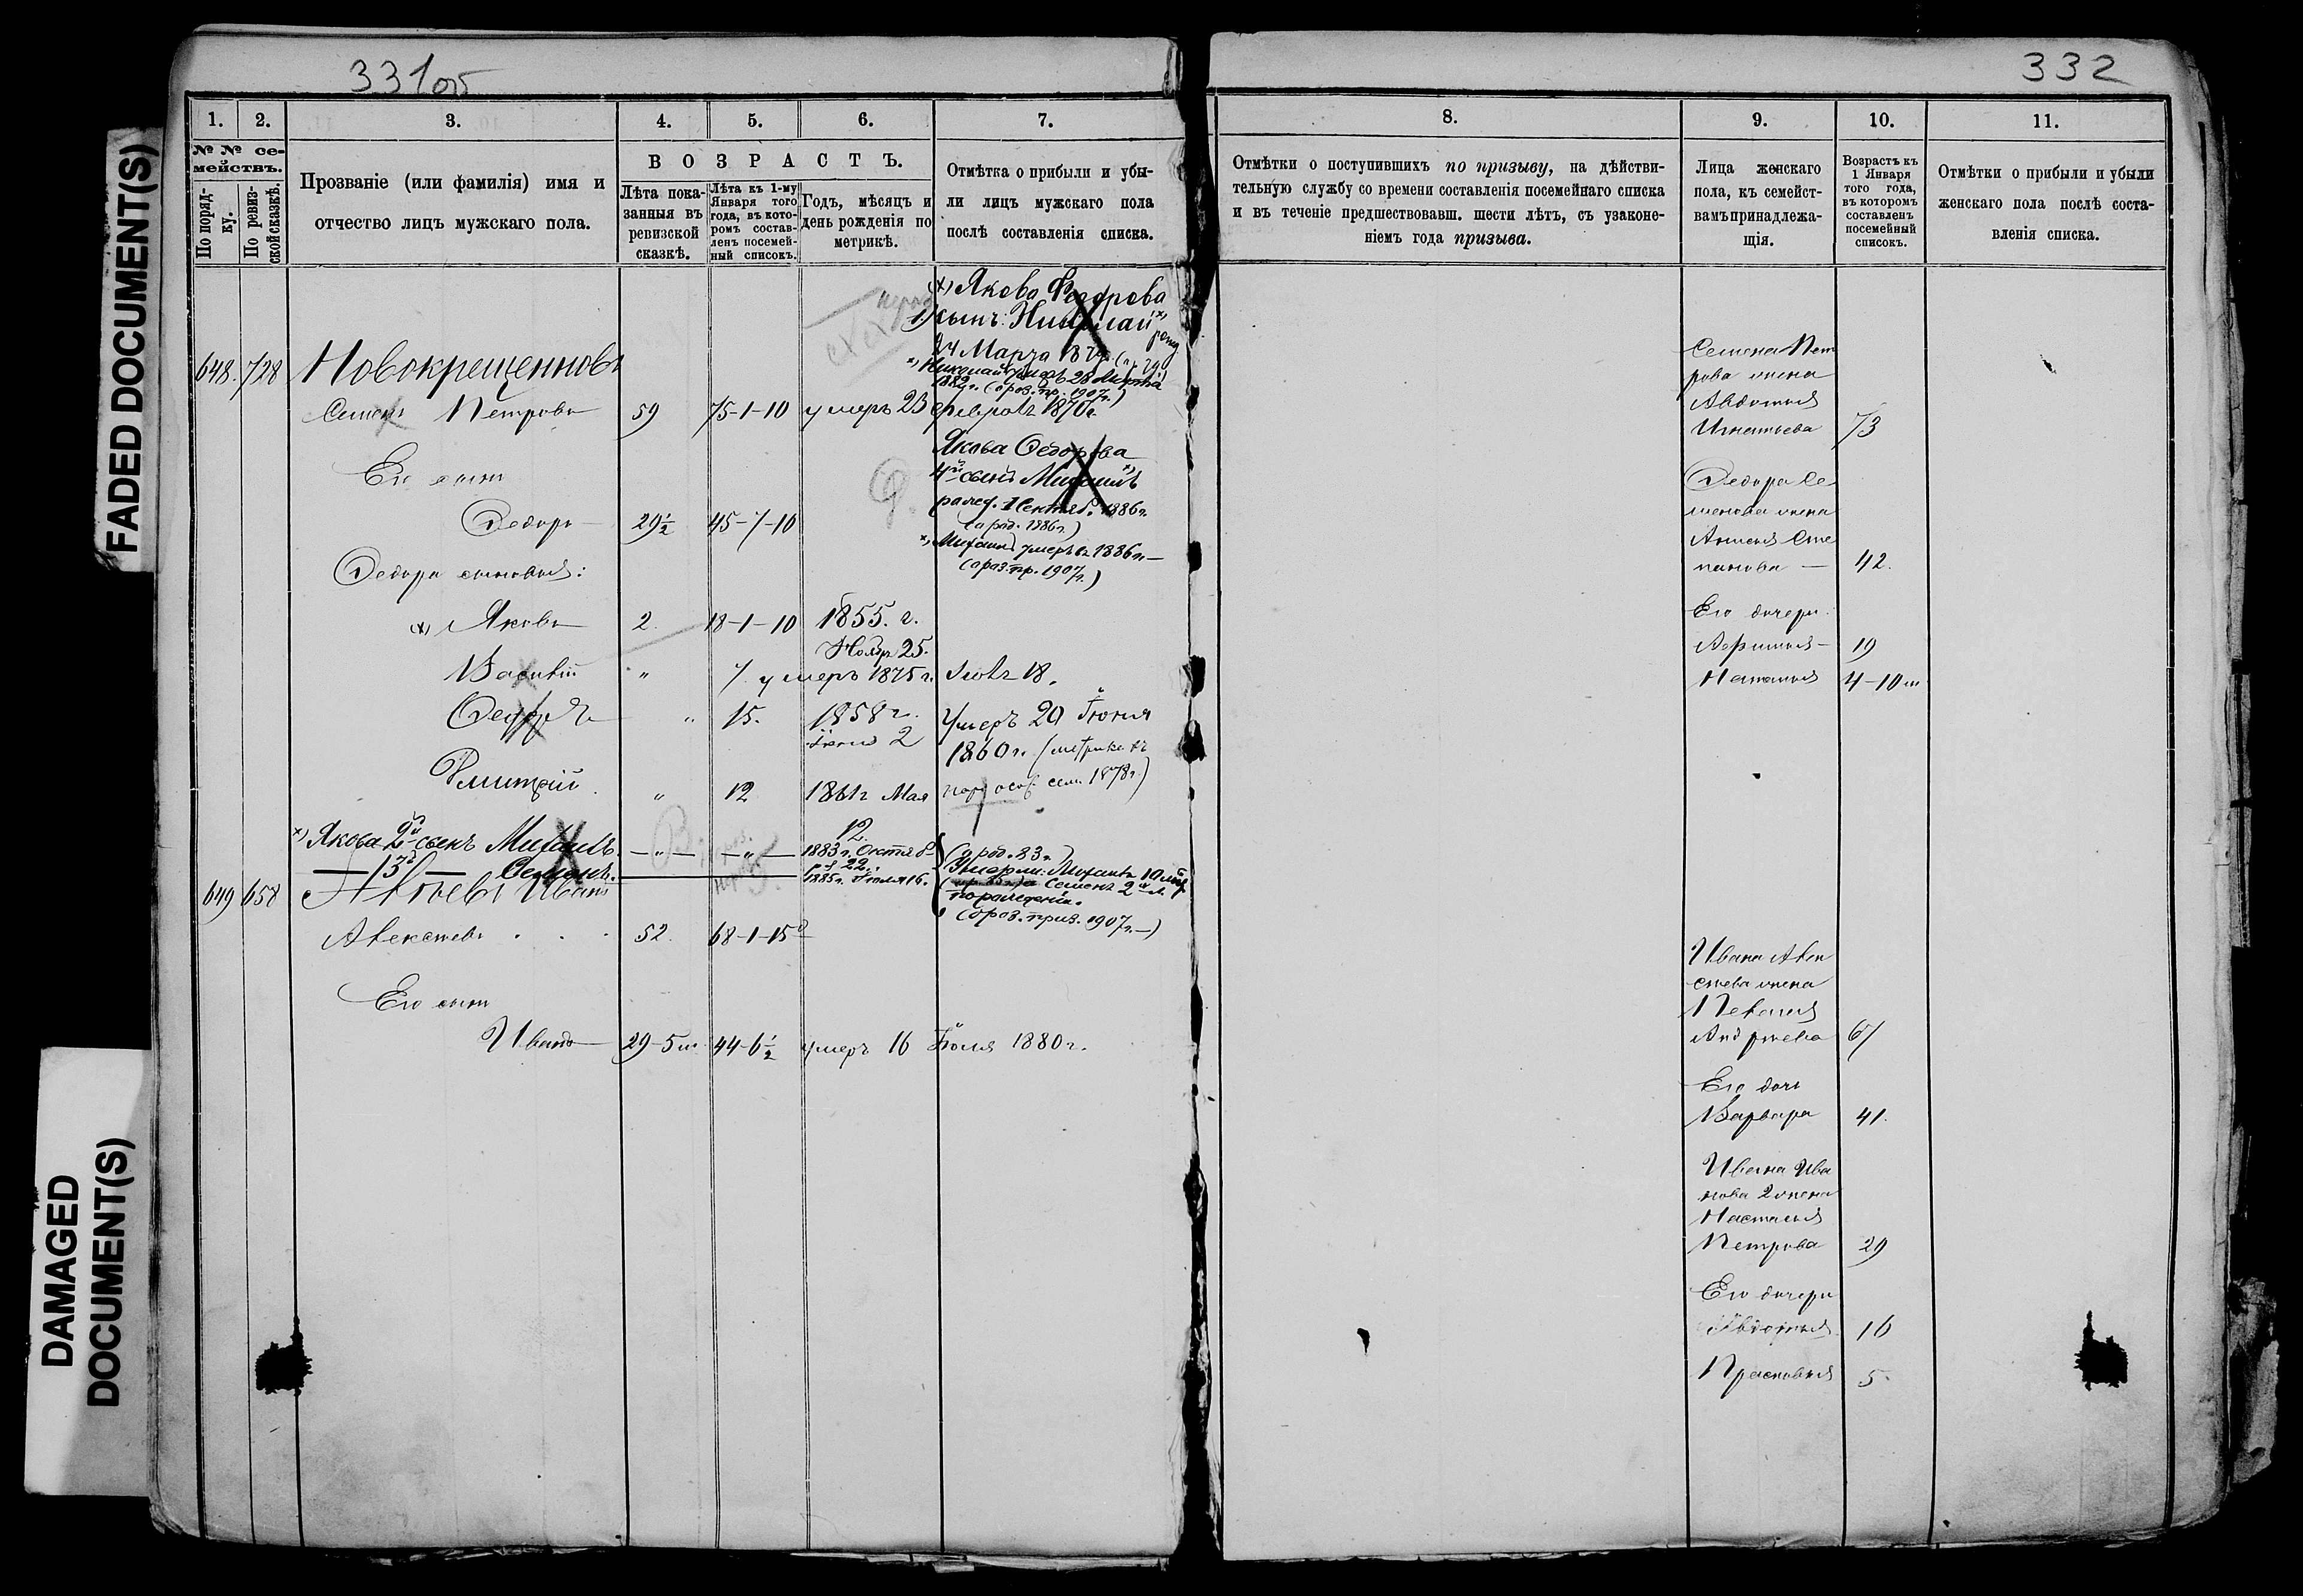 FADED DOCUMENT(S)
DAMAGED
DOCUMENT(S)
331об
1. 2. 3. 4. 5. 6. 7.
№ № се-
мействъ.
По поряд-
ку.
По ревиз-
скойсказкѣ.
Прозваніе (или фамилія) имя и
отчество лицъ мужскаго пола.
В О З Р А С Т Ъ.
Лѣта пока-
занныя въ
ревизской
сказкѣ.
Лѣта къ 1-му
Января того
года, въ кото-
ромъ состав-
ленъ посемей-
ный списокъ.
Годъ, мѣсяцъ и
день рожденія по
метрикѣ.
Отмѣтка о прибыли и убы-
ли лицъ мужскаго пола
послѣ составленія списка.
х) Якова Федорова
1) сынъ: Николай х)
24 Марта
х) Николай умеръ 28 Марта
1882 г. (о раз. пр. 1907 г.)
648. 728 Новокрещенновъ
Семенъ Петровъ 59 75-1-10 умеръ 23 февраля 1876 г.
Якова Федорова
4й сынъ Михаилъ х)
рожд. 1 Сентяб. 1886 г.
(о род. 1886 г.)
х) Михаилъ умеръ въ 1886 г. —
(о раз. пр. 1907 г.)
Его сынъ
Федоръ 29½ 45-7-10
Федора сыновья:
х) Яковъ 2 18-1-10 1855. г.
Ноябр 25.
Василій " 7 умеръ 1875 г. 18.
Федоръ " 15. 1858 г. Умеръ 20 Іюня
Іюня 2 1860 г. (метрика къ
Дмитрій " 12 1861 г Мая 1878 г.)
12
х) Якова 2й сынъ Михаилъ — " — — " — 1883 г. Октяб (о род. 83 г.)
22.
— 3й — Семенъ. 1885 г. Іюля 16.
Умерли: Михаилъ 10 мѣс.
Семенъ 2
по рожденіи.
(о раз. приз. 1907 г. —)
649 658 Иванъ
Алексѣевъ . . . 52. 68-1-15
Его сынъ
Иванъ 29-5 м. 44-6½ умеръ 16 Іюля 1880 г.
332
8. 9. 10. 11.
Отмѣтки о поступившихъ по призыву, на дѣйстви-
тельную службу со времени составленія посемейнаго списка
и въ теченіе предшествовавш. шести лѣтъ, съ узаконе-
ніемъ года призыва.
Лица женскаго
пола, къ семейст-
вамъ принадлежа-
щія.
Возрастъ къ
1 Января
того года,
въ которомъ
составленъ
посемейный
списокъ.
Отмѣтки о прибыли и убыли
женскаго пола послѣ соста-
вленія списка.
Семена Пет
рова жена
Авдотья
Игнатьева 73
Федора Се
менова жена
Аксинья Сте
панова — 42.
Его дочери
19
Наталья 4-10 м
Ивана Алек
сѣева жена
Пелагея
Андреева 67
Его дочь
Варвара 41.
Ивана Ива
нова 2 жена
Настасья
Петрова 29
Его дочери
Авдотья 16
Прасковья 5